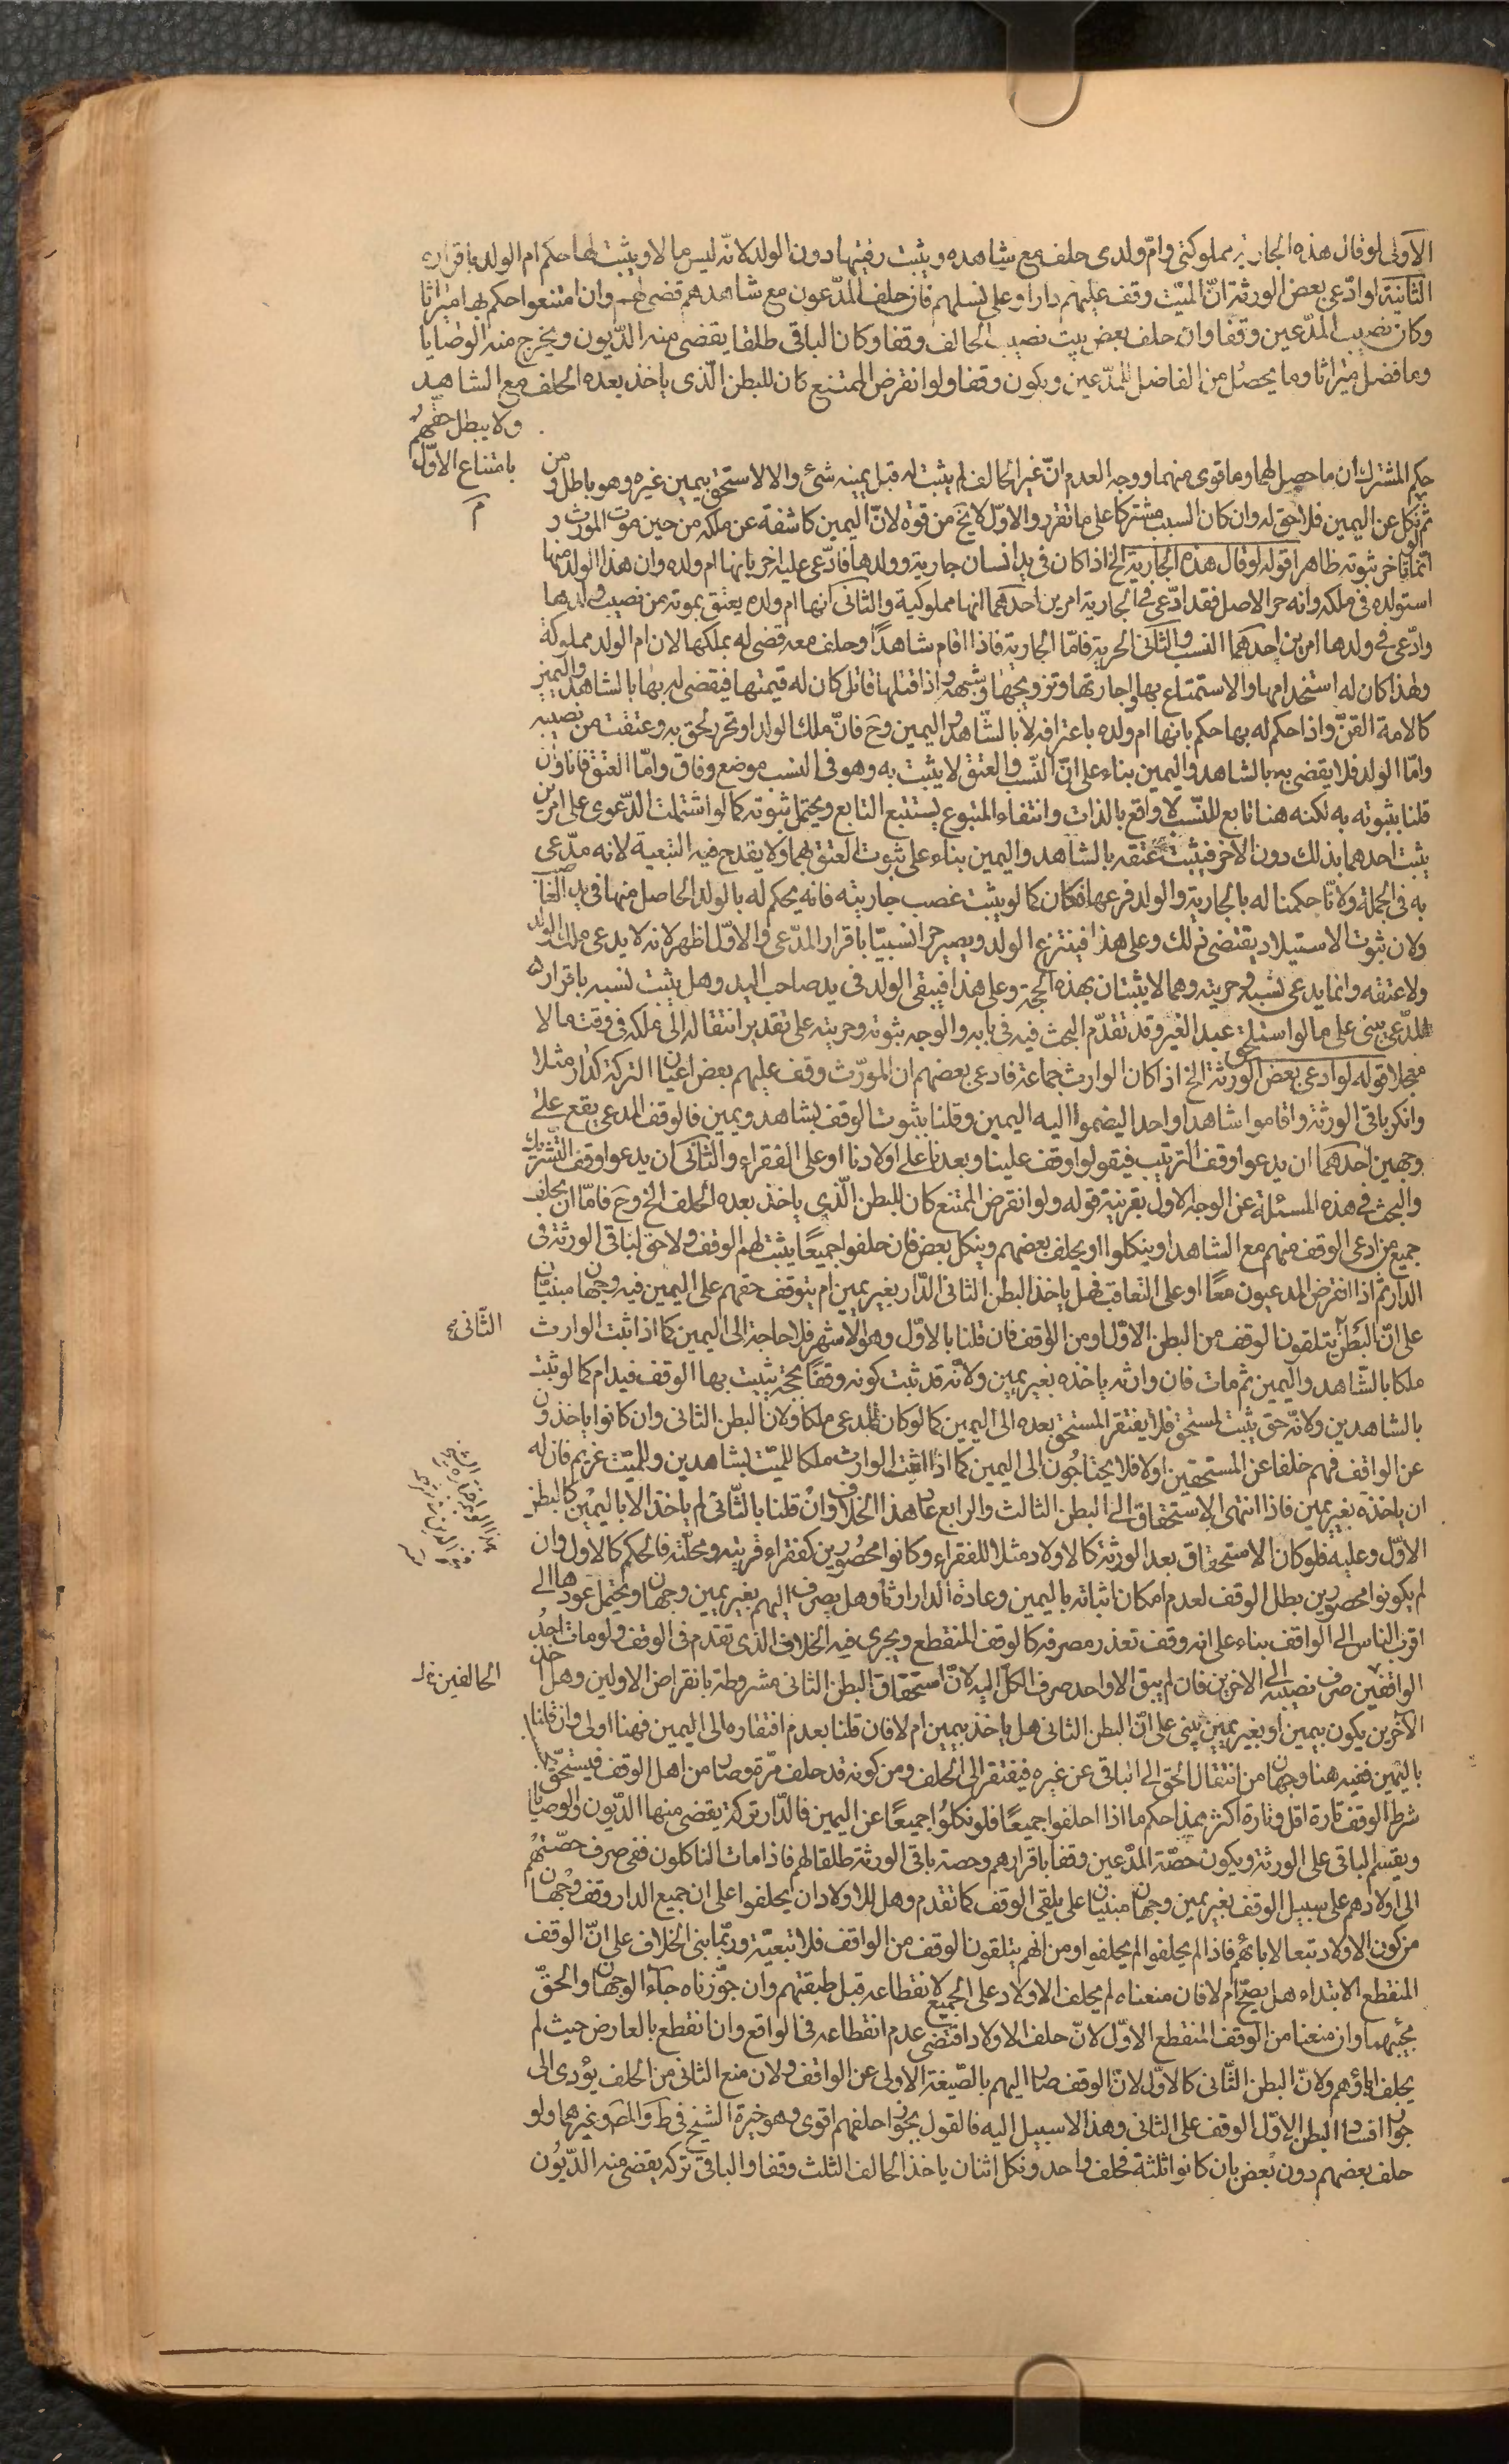 الاولى لو قال هذه الجارية مملوكتى وامّ ولدى حلف مع شاهده ويثبت رقيتها دون الولد لانّه ليس مالا ويثبت لها حكم ام الولد باقراره
الثانية لو ادّعى بعض الورثة انّ الميّت وقف عليهم دارا وعلى نسلهم فان حلف المدّعون مع شاهدهم قضى لهم وان امتنعوا حكم بها ميراثا
وكان نصيب المدّعين وقفا وان حلف بعض يثبت نصيب الحالف وقفا وكان الباقى طلقا يقضى منه الدّيون ويخرج منه الوصايا
وما فضل ميراثا وما يحصل من الفاضل للمدّعين ويكون وقفا ولو انقرض الممتنع كان للبطن الّذى ياخذ بعده الحلف مع الشاهد
ولا يبطل حقّهم
بامتناع الاوّل
م
حكم المشترك ان ما حصل لهما وما توى منهما ووجه العدم انّ غير الحالف لم يثبت له قبل يمينه شئ والا لاستحق بيمين غيره وهو باطل ومن
ثم نكل عن اليمين فلا حق له وان كان السبب مشتركا على ما تقرر والاوّل لا يخ من قوة لانّ اليمين كاشفة عن ملكه من حين موت المورث و
انّما تاخر ثبوته ظاهرا قوله لو قال هذه الجارية الخ اذا كان فى يد انسان جارية وولدها فادّعى عليه اخر بانها ام ولده وان هذا الولد منها
استولده فى ملكه وانه حر الاصل فقد ادّعى فى الجارية امرين احدهما انها مملوكية والثانى انها ام ولده يعتق بموته من نصيب ولدها
وادّعى فى ولدها امرين احدهما النسب والثانى الحرية فامّا الجارية فاذا اقام شاهدًا وحلف معه قضى له بملكها لان ام الولد مملوكة
ولهذا كان له استخدامها والاستمتاع بها واجارتها وتزويجها وشبهه واذا قتلها قاتل كان له قيمتها فيقضى له بها بالشاهد واليمين
كالامة القنّ واذا حكم له بها حكم بانها ام ولده باعترافه لا بالشاهد واليمين وح فانّ ملك الولد او تحرر لحق به وعتقت من نصيبه
وامّا الولد فلا يقضى به بالشاهد واليمين بناء على انّ النّسب والعتق لا يثبت به وهو فى النسب موضع وفاق وامّا العتق فانا وان
قلنا بثبوته به لكنه هنا تابع للنّسب لا واقع بالذات وانتفاء المتبوع يستتبع التابع ويحتمل ثبوته كما لو اشتملت الدّعوى على امرين
يثبت احدهما بذلك دون الاخر فيثبت عتقه بالشاهد واليمين بناء على ثبوت العتق بهما ولا يقدح فيه التبعية لانه مدّعى
به فى الجملة ولانّا حكمنا له بالجارية والولد فرعها فكان كما لو يثبت غصب جاريته فانه يحكم له بالولد الحاصل منها فى يد الغاصب
ولان ثبوت الاستيلاد يقتضى ذلك وعلى هذا فينتزع الولد ويصير حرا نسيبا باقرار المدّعى والاوّل اظهر لانه لا يدعى ملك الولد
ولا عتقه وانما يدعى نسبه وحريته وهما لا يثبتان بهذه الحجة وعلى هذا فيبقى الولد فى يد صاحب اليد وهل يثبت نسبه باقراره
المدّعى يبنى على ما لو استلحق عبد الغير وقد تقدّم البحث فيه فى بابه والوجه ثبوته وحريته على تقدير انتقاله الى ملكه فى وقت ما لا
منجلا قوله لو ادعى بعض الورثة الخ اذا كان الوارث جماعة فادعى بعضهم ان المورّث وقف عليهم بعض اعيان التركة كدار مثلا
وانكر باقى الورثة واقاموا شاهدا واحدا ليضموا اليه اليمين وقلنا بثبوت الوقف بشاهد ويمين فالوقف المدعى يقع على
وجهين احدهما ان يدعوا وقف الترتيب فيقولوا وقف علينا وبعدنا على اولادنا او على الفقراء والثانى ان يدعوا وقف التّشريك
والبحث فى هذه المسئلة عن الوجه الاول بقرينة قوله ولو انقرض الممتنع كان للبطن الّذى ياخذ بعده الحلف الخ وح فامّا ان يحلف
جميع من ادعى الوقف منهم مع الشاهد او ينكلوا او يحلف بعضهم وينكل بعض فان حلفوا جميعًا يثبت لهم الوقف ولا حق لباقى الورثة فى
الدار ثم اذا انقرض المدعيون معًا او على التعاقب فهل ياخذ البطن الثانى الدّار بغير يمين ام يتوقف حقهم على اليمين فيه وجهان مبنيّان
على انّ البطن يتلقون الوقف من البطن الاوّل او من الواقف فان قلنا بالاوّل وهو الاشهر فلا حاجة الى اليمين كما اذا اثبت الوارث
الثّانى صح
ملكا بالشّاهد واليمين ثم مات فان وارثه ياخذه بغير يمين ولانّه قد ثبت كونه وقفًا بحجة يثبت بها الوقف فيدام كما لو ثبت
بالشاهدين ولانّه حق يثبت لمستحق فلا يفتقر المستحق بعده الى اليمين كما لو كان المدعى ملكا ولان البطن الثانى وان كانوا ياخذون
عن الواقف فهم خلفا عن المستحقين اولا فلا يحتاجون الى اليمين كما اذا اثبت الوارث ملكا للميّت بشاهدين وللميّت غريم فان له
ان ياخذه بغير يمين فاذا انتهى الاستحقاق الى البطن الثالث والرابع عاد هذا الخلاف وان قلنا بالثّانى لم ياخذ الا باليمين كالبطن
الاوّل وعليه فلو كان الاستحقاق بعد الورثة كالاولاد مثلا للفقراء وكانوا محصورين كفقراء قريته ومحلّته فالحكم كالاول وان
لم يكونوا محصورين بطل الوقف لعدم امكان اثباته باليمين وعادة الدار ارثا وهل يصرف اليهم بغير يمين وجهان ويحتمل عودها الى
اقرب الناس الى الواقف بناء على انه وقف تعذر مصرفه كالوقف المنقطع ويجرى فيه الخلاف الذى تقدم فى الوقف ولو مات احد
الواقفين صرف نصيبه الى الاخرين فان لم يبق الا واحد صرف الكلّ اليه لانّ استحقاق البطن الثانى مشروطة بانقراض الاولين وهل اخذ
الحالفين
الآخرين يكون بيمين او بغير يمين يبنى على انّ البطن الثانى هل ياخذ بيمين ام لا فان قلنا بعدم افتقاره الى اليمين فهنا اولى وان قلنا
باليمين ففيه هنا وجهان من انتقال الحق الى الباقى عن غيره فيفتقر الى الحلف ومن كونه قد حلف مرّة وصار من اهل الوقف فيستحقّ
شرط الوقف تارة اقل وتارة اكثر هذا حكم ما اذا احلفوا جميعًا فلو نكلوا جميعًا عن اليمين فالدّار تركة يقضى منها الدّيون والوصايا
ويقسم الباقى على الورثة ويكون حصّة المدّعين وقفا باقرارهم وحصة باقى الورثة طلقا لهم فاذا مات الناكلون ففى صرف حصّتهم
الى اولادهم على سبيل الوقف بغير يمين وجهان مبنيّان على تلقى الوقف كما تقدم وهل للاولاد ان يحلفوا على ان جميع الدار وقف وجهان
من كون الاولاد تبعا لابائهم فاذا لم يحلفوا لم يحلفوا ومن انهم يتلقون الوقف من الواقف فلا تبعيّة وربّما بنى الخلاف على انّ الوقف
المنقطع الابتداء هل يصحّ ام لا فان منعناه لم يحلف الاولاد على الجميع لانقطاعه قبل طبقتهم وان جوّزناه جآء الوجهان والحقّ
مجيئهما وان منعنا من الوقف المنقطع الاوّل لانّ حلف الاولاد اقتضى عدم انقطاعه فى الواقع وان انقطع بالعارض حيث لم
يحلف اباؤهم ولانّ البطن الثّانى كالاوّل لانّ الوقف صار اليهم بالصّيغة الاولى عن الواقف ولان منع الثانى من الحلف يؤدى الى
جواز افساد البطن الاوّل الوقف على الثانى وهذا لا سبيل اليه فالقول بجواز حلفهم اقوى وهو خيرة الشيخ فى ط والمصَ وغيرهما ولو
حلف بعضهم دون بعض بان كانوا ثلثة فحلف واحد ونكل اثنان ياخذ الحالف الثلث وقفا والباقى تركه يقضى منه الدّيون